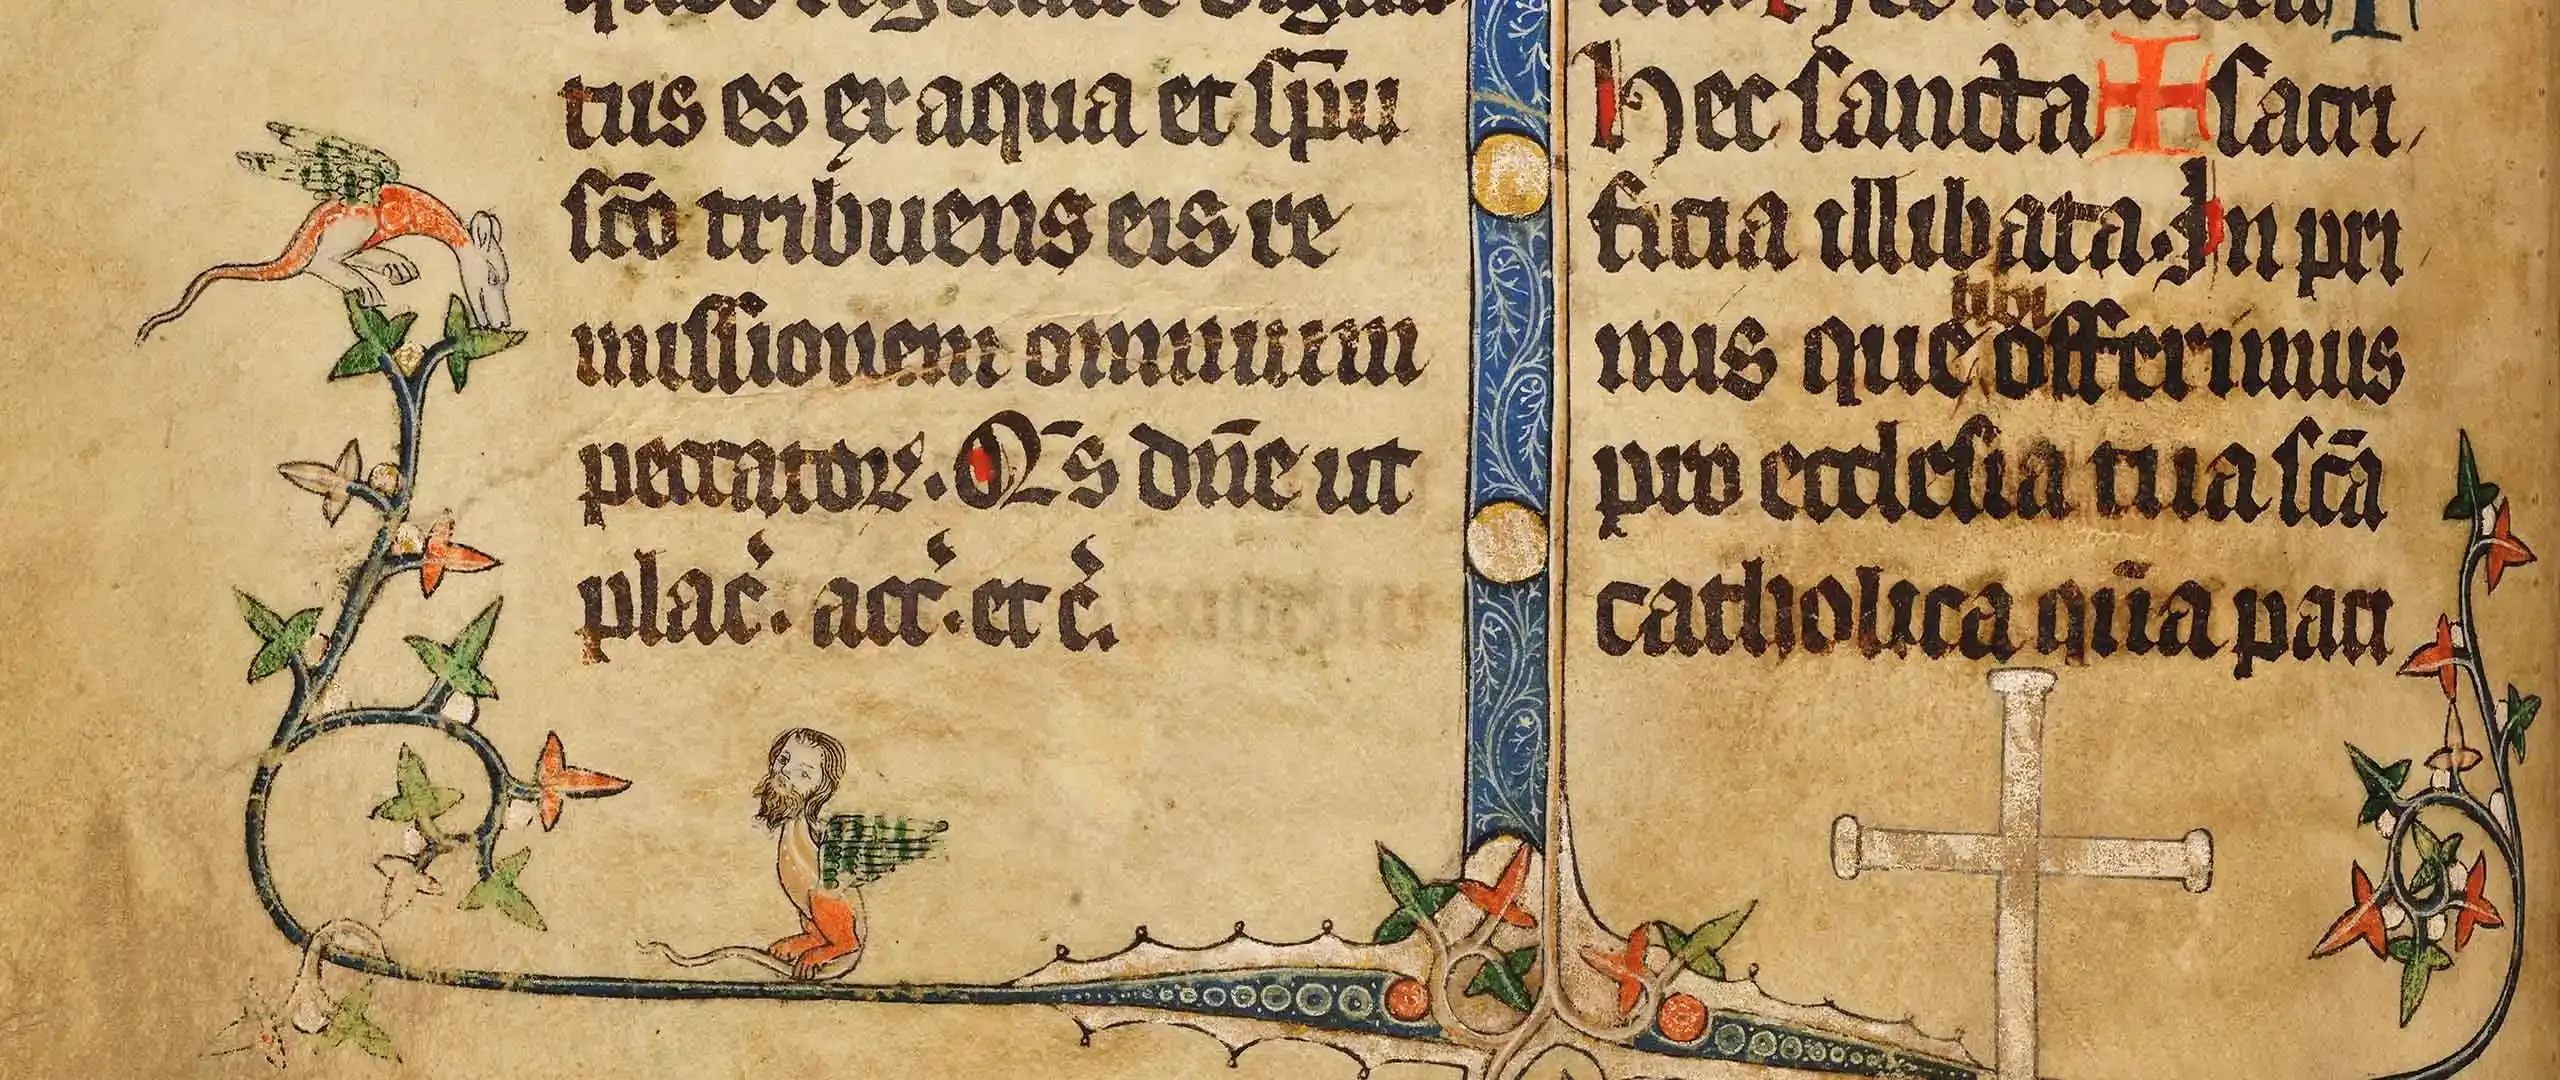 quos regenerare digna
tus es ex aqua et sp̄u
sc̄o tribuens eis re
missionem omnium
peccatoꝝ. Q̄s dn̄e ut
plac̉. acc̉. et c̉.
hec sancta ✠ sacri
ficia illibata. In pri
mis que tibi offerimus
pro ecclesia tua sc̄a
catholica qūa paci